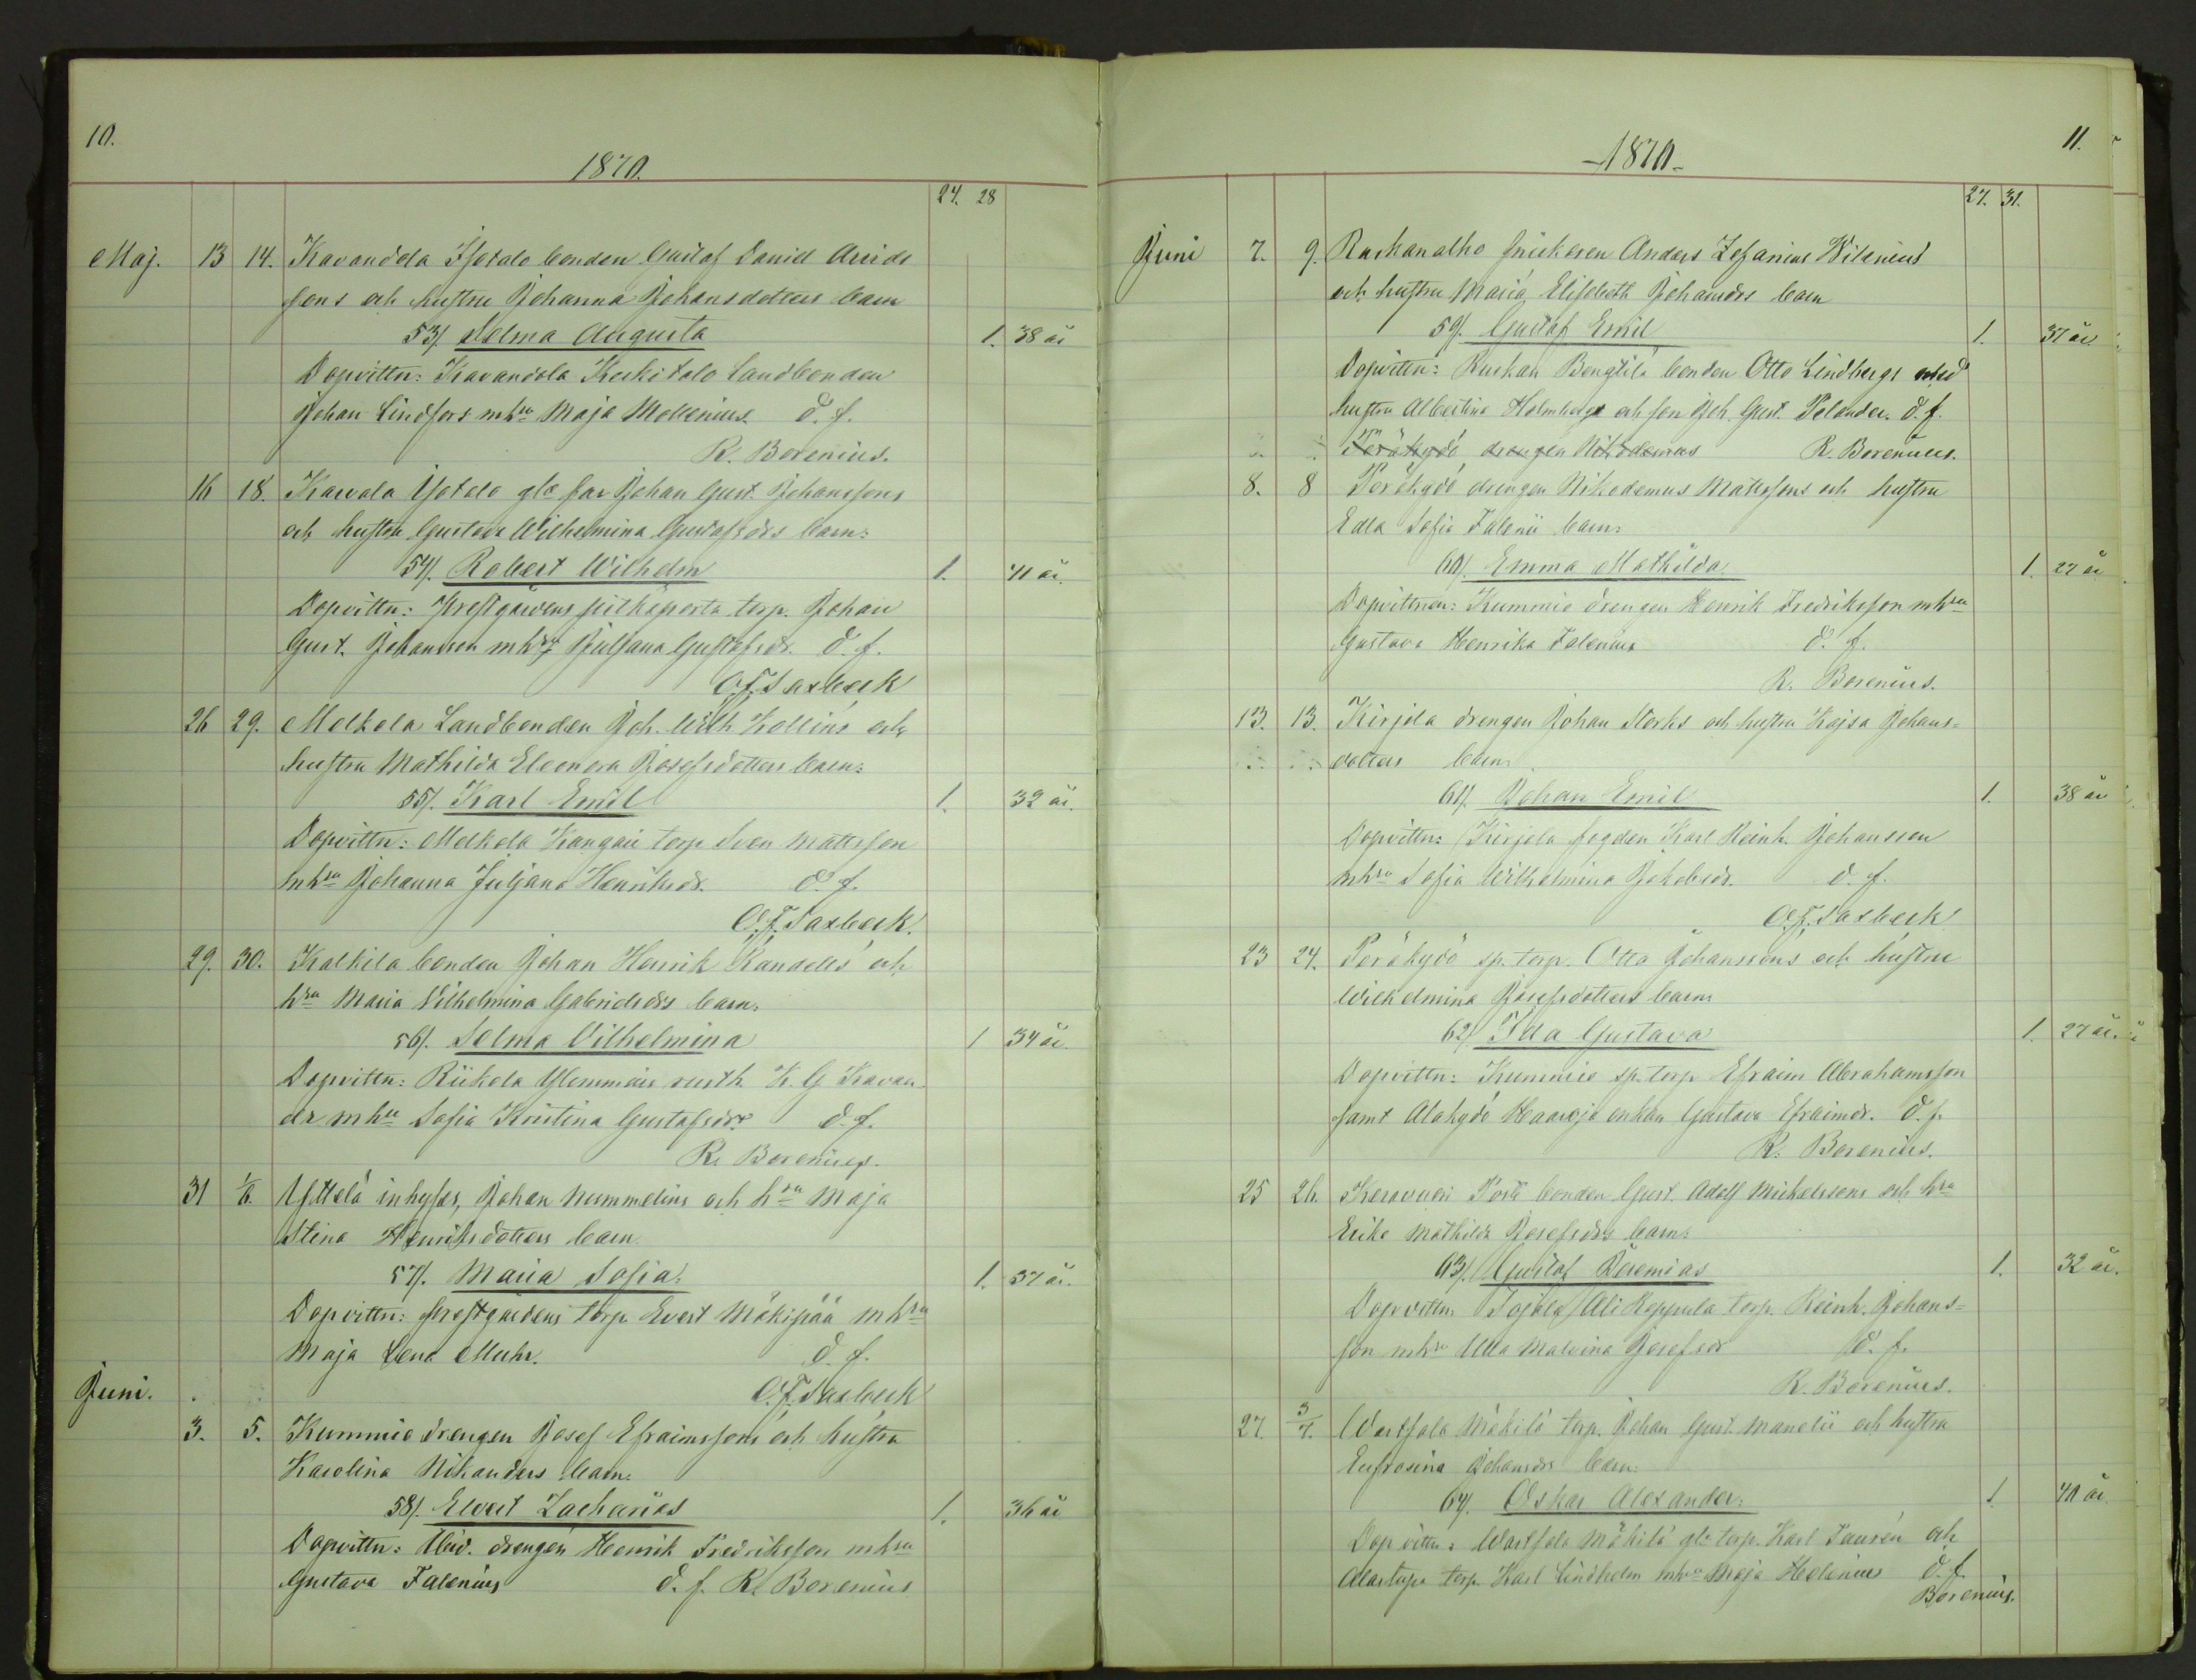 10.
1870.
24. 28
Maj. 13 14. Kavandola Isotalo bonden Gustaf David Arvids
sons och hustru Johanna Johansdotters barn
53/. Selma Augusta 1. 38 år
Dopvittn: Kavandola Keskitalo landbonden
Johan Lindfors mhru Maja Mollenius. d. f.
R. Borenius.
16 18. Karvola Yötalo gla far Johan Gust. Johanssons
och hustru Gustava Wilhelmina Gustafsdrs barn:
54/. Robert Wilhelm 1. 41 år.
Dopvittn: Prestgårdens torp. Johan
Gust. Johansson mhru Juljana Gustafsdr. d. f.
O.F. Saxbeck
26 29. Melkola Landbonden Joh. Wilh Kollins och
hustru Mathilda Eleonora Josefsdotters barn:
55/. Karl Emil 1. 32 år.
Dopvittn: Melkola Kangari torp Sven Mattsson
mhru Johanna Juljana Henriksdr. d. f.
O.F. Saxbeck.
29. 30. Kalkila bonden Johan Henrik Kandells och
hru Maria Vilhelmina Gabrielsdrs barn:
56/. Selma Vilhelmina 1 34 år.
Dopvittn: Riikola Ylemmäis rusth K. G Kavan
der mhru Sofia Kristina Gustafsdr. d. f.
R. Borenius.
31 1/6. Ylttelä inhyses, Johan Nummelins och hru Maja
Stina Henriksdotters barn
57/. Maria Sofia. 1. 37 år.
Dopvittn: prestgårdens torp. Evert Mäkipää mhru
Maja Lena Muhr. d. f.
O.F. Saxbeck
Juni.
3. 5. Kummie drengen Josef Efraimssons och hustru
Karolina Nikanders barn:
58/. Evert Zacharias 1. 36 år
Dopvittn: drengen Henrik Fredriksson mhru
Gustava Falenius d. f. R. Borenius
11.
1870
27. 31.
Juni 7. 9. Raskanalho snickaren Anders Zefanias Wilenius
och hustru Maria Elisabeth Johansdrs barn
59/. Gustaf Emil 1. 37 år.
Dopvittn: Ruskah Bengtilä bonden Otto Lindbergs med
hustru Albertina Holmberg och son Joh. Gust. Pelander. d. f.
Peräkydö drengen Nikodemus R. Borenius.
8. 8 Peräkydö drengen Nikodemus Matssons och hustru
Edla Sofia Falenii barn:
60/. Emma Mathilda 1. 27 år
Dopvittnen: Kummie drengen Henrik Fredriksson mhru
Gustava Henrika Falenius d. f.
R. Borenius.
13. 13. Kirjola drengen Johan Storks och hustru Kajsa Johans=
dotters barn:
61/. Johan Emil 1. 38 år
Dopvittn: Kirjola fogden Karl Reinh. Johansson
mhru Sofia Wilhelmina Jakobsdr. d. f.
O.F. Saxbeck
23 24. Peräkydö sp. torp. Otto Johanssons och hustru
Wilhelmina Josefsdotters barn:
62/. Ida Gustava 1. 27 år.
Dopvittn: Kummie sp. torp Efraim Abrahamsson
samt Alakydö Haaroja enkan Gustava Efraimdr. d. f.
R. Borenius.
25 26. Keravuori Perti bonden Gust. Adolf Mickelssons och hru
Erika Mathilda Josefsdrs barn:
63/. Gustaf Jeremias 1. 32 år.
Dopvittn: Tojala Ali Reppula torp. Reinh. Johans=
son mhru Ulla Malvina Josefsdr d. f.
R. Borenius.
27. 3/7. Wartsala Mäkilä torp. Johan Gust. Manelii och hustru
Eufrosina Johansdrs barn:
64/. Oskar Alexander. 1 40 år
Dopvittn: Wartsala Mäkilä gla torp. Karl Faurén och
Alastupa torp. Karl Lindholm mhru Maja Helenius d. f.
Borenius.